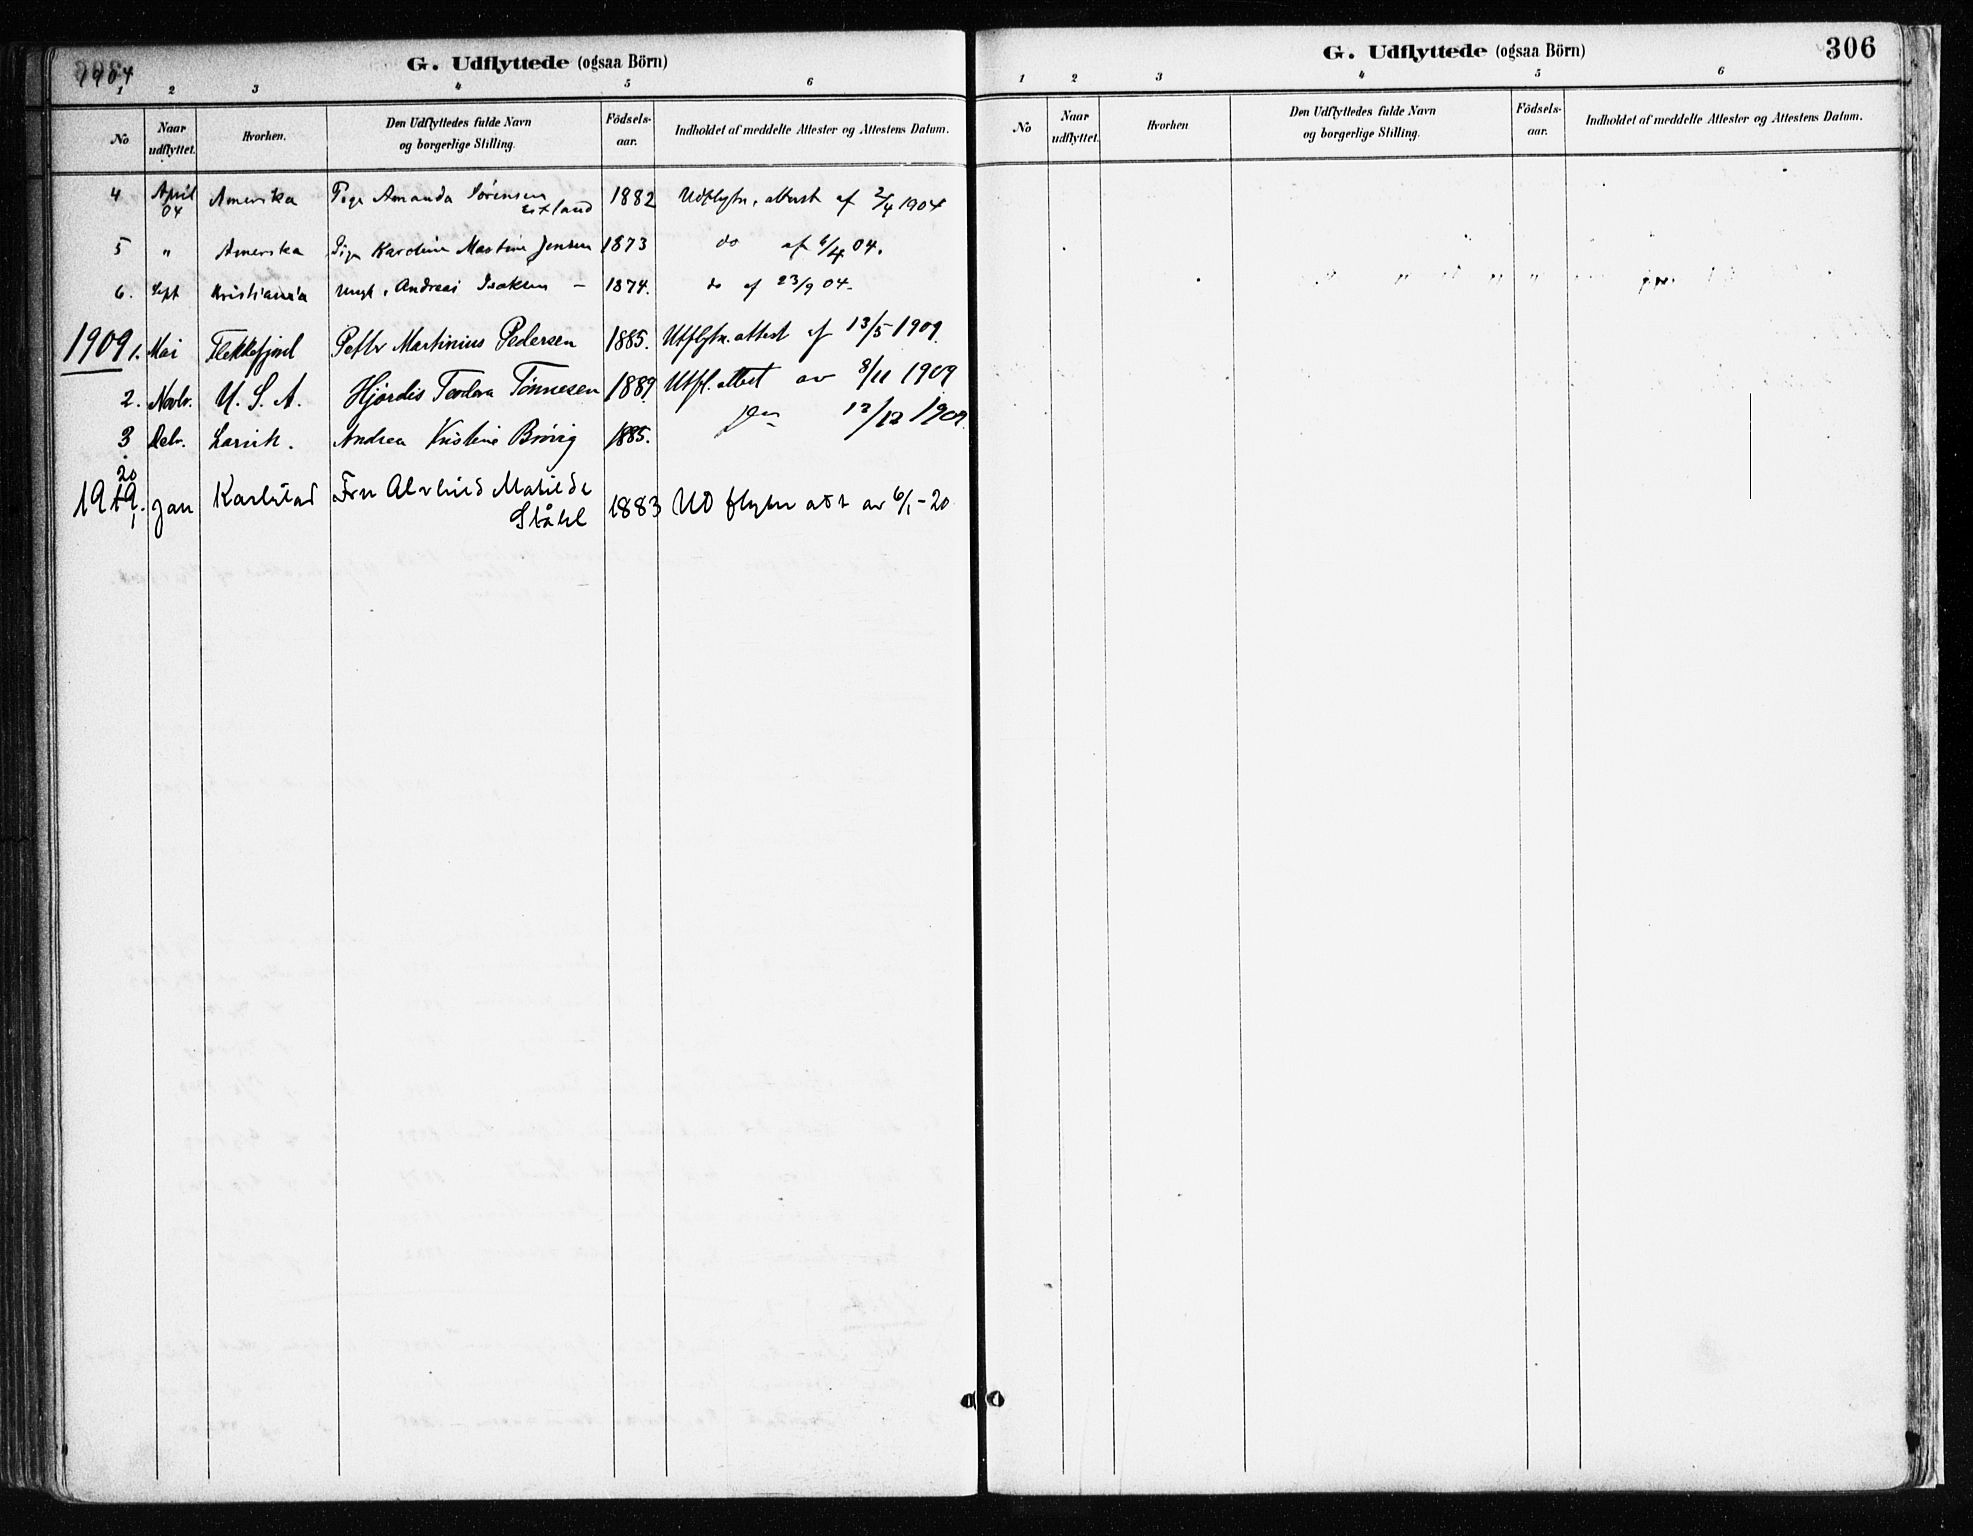 1904
G. Udflyttede (ogsaa Börn)
1 2 3 4 5 6
No
Naar udflyttet.
Hvorhen.
Den Udflyttedes fulde Navn og borgerlige Stilling.
Födsels-aar.
Indholdet af meddelte Attester og Attestens Datum.
4 April 04 Amerika Pige Amanda Sørensen 1882 Udflytn. attest af 2/4 1904
5 " Amerika Pige Karoline Martine Jensen 1873 do af 6/4 04.
6. Sept Kristiania Ungk. Andreas Isaksen – 1874. do af 23/9 04.
1909 1. Mai Flekkefjord Petter Martinius Pedersen 1885. Utflytn. attest af 13/5 1909.
2. Novbr. U. S. A. Hjørdis Teodora Tönnesen 1889 Utfl. attest av 8/11 1909
3 Debr. Larvik. Andrea Kristine Brövig 1885. 12/12 1909.
20
1919. 1 Jan Karlstad Fru Alvhild Matilde
Ståhl 1883 Ud flytn att av 6/1-20
G. Udflyttede (ogsaa Börn)
306
1 2 3 4 5 6
No
Naar udflyttet.
Hvorhen
Den Udflyttedes fulde Navn og borgerlige Stilling.
Födsels-aar.
Indholdet af meddelte Attester og Attestens Datum.